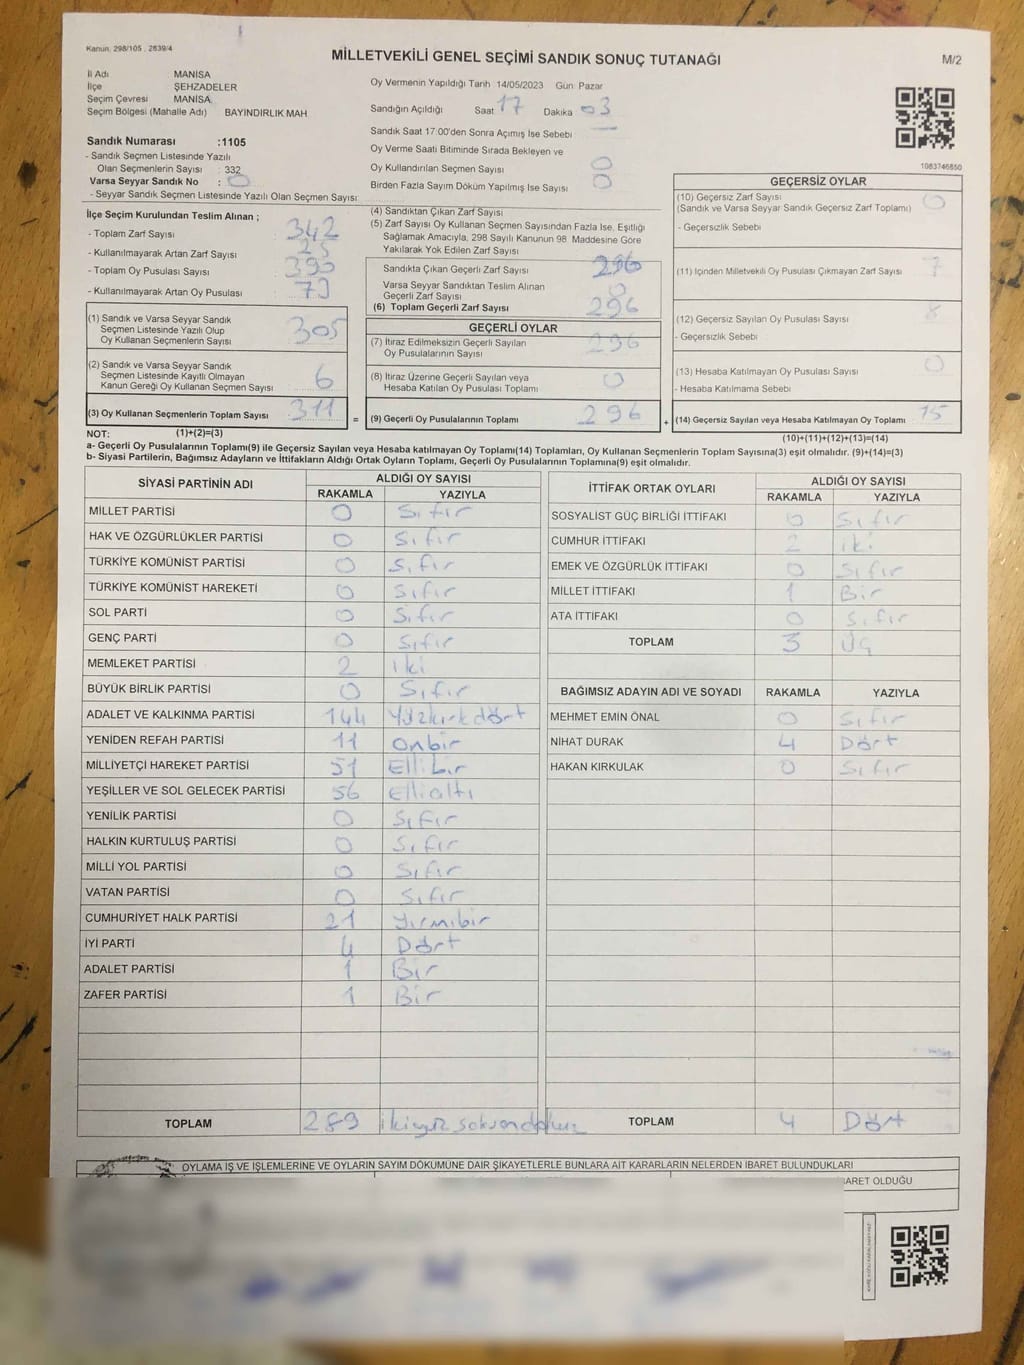 Kanun, 298/105 , 2839/4
MİLLETVEKİLİ GENEL SEÇİMİ SANDIK SONUÇ TUTANAĞI
M/2
İl Adı MANİSA
İlçe ŞEHZADELER
Seçim Çevresi MANİSA
Seçim Bölgesi (Mahalle Adı) BAYINDIRLIK MAH
Sandık Numarası :1105
- Sandık Seçmen Listesinde Yazılı
Olan Seçmenlerin Sayısı : 332
Varsa Seyyar Sandık No : 0
- Seyyar Sandık Seçmen Listesinde Yazılı Olan Seçmen Sayısı:
Oy Vermenin Yapıldığı Tarih 14/05/2023 Gün: Pazar
Sandığın Açıldığı Saat 17 Dakika 03
Sandık Saat 17:00'den Sonra Açımış İse Sebebi —
Oy Verme Saati Bitiminde Sırada Bekleyen ve
Oy Kullandırılan Seçmen Sayısı 0
Birden Fazla Sayım Döküm Yapılmış İse Sayısı 0
1083746850
İlçe Seçim Kurulundan Teslim Alınan ;
- Toplam Zarf Sayısı 342
- Kullanılmayarak Artan Zarf Sayısı
- Toplam Oy Pusulası Sayısı 390
- Kullanılmayarak Artan Oy Pusulası 79
(1) Sandık ve Varsa Seyyar Sandık
Seçmen Listesinde Yazılı Olup
Oy Kullanan Seçmenlerin Sayısı 305
(2) Sandık ve Varsa Seyyar Sandık
Seçmen Listesinde Kayıtlı Olmayan
Kanun Gereği Oy Kullanan Seçmen Sayısı 6
(3) Oy Kullanan Seçmenlerin Toplam Sayısı 311 =
(1)+(2)=(3)
(4) Sandıktan Çıkan Zarf Sayısı
(5) Zarf Sayısı Oy Kullanan Seçmen Sayısından Fazla İse, Eşitliği
Sağlamak Amacıyla, 298 Sayılı Kanunun 98 Maddesine Göre
Yakılarak Yok Edilen Zarf Sayısı
Sandıkta Çıkan Geçerli Zarf Sayısı 296
Varsa Seyyar Sandıktan Teslim Alınan
Geçerli Zarf Sayısı 0
(6) Toplam Geçerli Zarf Sayısı 296
GEÇERLİ OYLAR
(7) İtiraz Edilmeksizin Geçerli Sayılan
Oy Pusulalarının Sayısı 296
(8) İtiraz Üzerine Geçerli Sayılan veya
Hesaba Katılan Oy Pusulası Toplamı 0
(9) Geçerli Oy Pusulalarının Toplamı 296 +
GEÇERSİZ OYLAR
(10) Geçersiz Zarf Sayısı
(Sandık ve Varsa Seyyar Sandık Geçersiz Zarf Toplamı) 0
- Geçersizlik Sebebi
(11) İçinden Milletvekili Oy Pusulası Çıkmayan Zarf Sayısı 7
(12) Geçersiz Sayılan Oy Pusulası Sayısı 8
- Geçersizlik Sebebi
(13) Hesaba Katılmayan Oy Pusulası Sayısı 0
- Hesaba Katılmama Sebebi
(14) Geçersiz Sayılan veya Hesaba Katılmayan Oy Toplamı 15
(10)+(11)+(12)+(13)=(14)
NOT:
a- Geçerli Oy Pusulalarının Toplamı(9) ile Geçersiz Sayılan veya Hesaba Katılmayan Oy Toplamı(14) Toplamları, Oy Kullanan Seçmenlerin Toplam Sayısına(3) eşit olmalıdır. (9)+(14)=(3)
b- Siyasi Partilerin, Bağımsız Adayların ve İttifakların Aldığı Ortak Oyların Toplamı, Geçerli Oy Pusulalarının Toplamına(9) eşit olmalıdır.
SİYASİ PARTİNİN ADI ALDIĞI OY SAYISI
RAKAMLA YAZIYLA
MİLLET PARTİSİ 0 Sıfır
HAK VE ÖZGÜRLÜKLER PARTİSİ 0 Sıfır
TÜRKİYE KOMÜNİST PARTİSİ 0 Sıfır
TÜRKİYE KOMÜNİST HAREKETİ 0 Sıfır
SOL PARTİ 0 Sıfır
GENÇ PARTİ 0 Sıfır
MEMLEKET PARTİSİ 2 iki
BÜYÜK BİRLİK PARTİSİ 0 Sıfır
ADALET VE KALKINMA PARTİSİ 144 Yüzkırkdört
YENİDEN REFAH PARTİSİ 11 Onbir
MİLLİYETÇİ HAREKET PARTİSİ 51 Ellibir
YEŞİLLER VE SOL GELECEK PARTİSİ 56 Ellialtı
YENİLİK PARTİSİ 0 Sıfır
HALKIN KURTULUŞ PARTİSİ 0 Sıfır
MİLLİ YOL PARTİSİ 0 Sıfır
VATAN PARTİSİ 0 Sıfır
CUMHURİYET HALK PARTİSİ 21 Yirmibir
İYİ PARTİ 4 Dört
ADALET PARTİSİ 1 Bir
ZAFER PARTİSİ 1 Bir
TOPLAM 289 ikiyüzseksendokuz
İTTİFAK ORTAK OYLARI ALDIĞI OY SAYISI
RAKAMLA YAZIYLA
SOSYALİST GÜÇ BİRLİĞİ İTTİFAKI 0 Sıfır
CUMHUR İTTİFAKI 2 iki
EMEK VE ÖZGÜRLÜK İTTİFAKI 0 Sıfır
MİLLET İTTİFAKI 1 Bir
ATA İTTİFAKI 0 Sıfır
TOPLAM 3 Üç
BAĞIMSIZ ADAYIN ADI VE SOYADI RAKAMLA YAZIYLA
MEHMET EMİN ÖNAL 0 Sıfır
NİHAT DURAK 4 Dört
HAKAN KIRKULAK 0 Sıfır
TOPLAM 4 Dört
OYLAMA İŞ VE İŞLEMLERİNE VE OYLARIN SAYIM DÖKÜMÜNE DAİR ŞİKAYETLERLE BUNLARA AİT KARARLARIN NELERDEN İBARET BULUNDUKLARI
BARET OLDUĞU